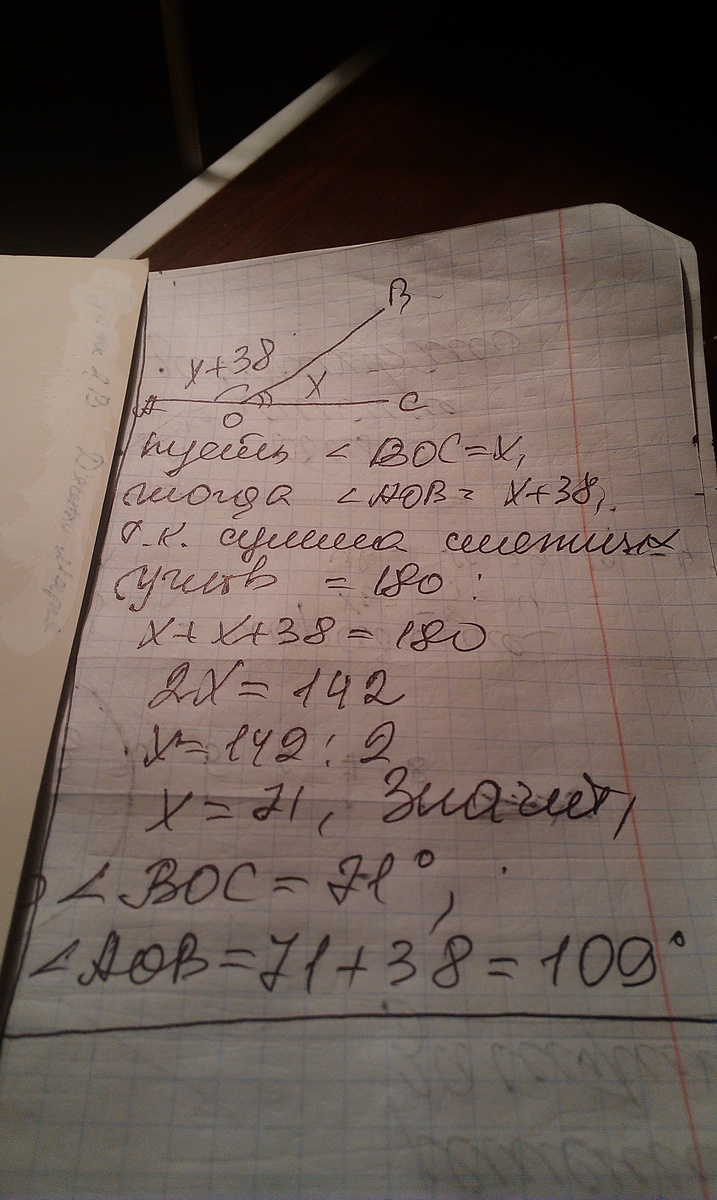 B
x+38
x
A
O
C
пусть ∠ BOC=x,
тогда ∠AOB= x+38,
т.к. сумма смежных
углов = 180 :
x+x+38=180
2x=142
x=142:2
x=71, Значит,
∠BOC=71°,
∠AOB=71+38=109°